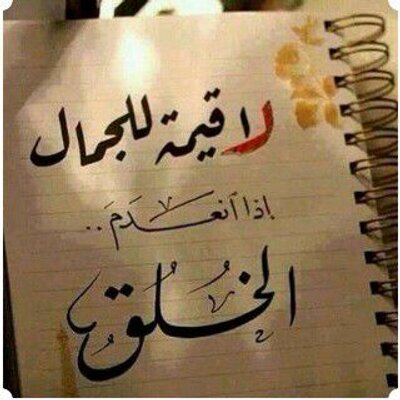 لا قيمة للجمال
إذا ٱنعدَمَ..
الخُلُق